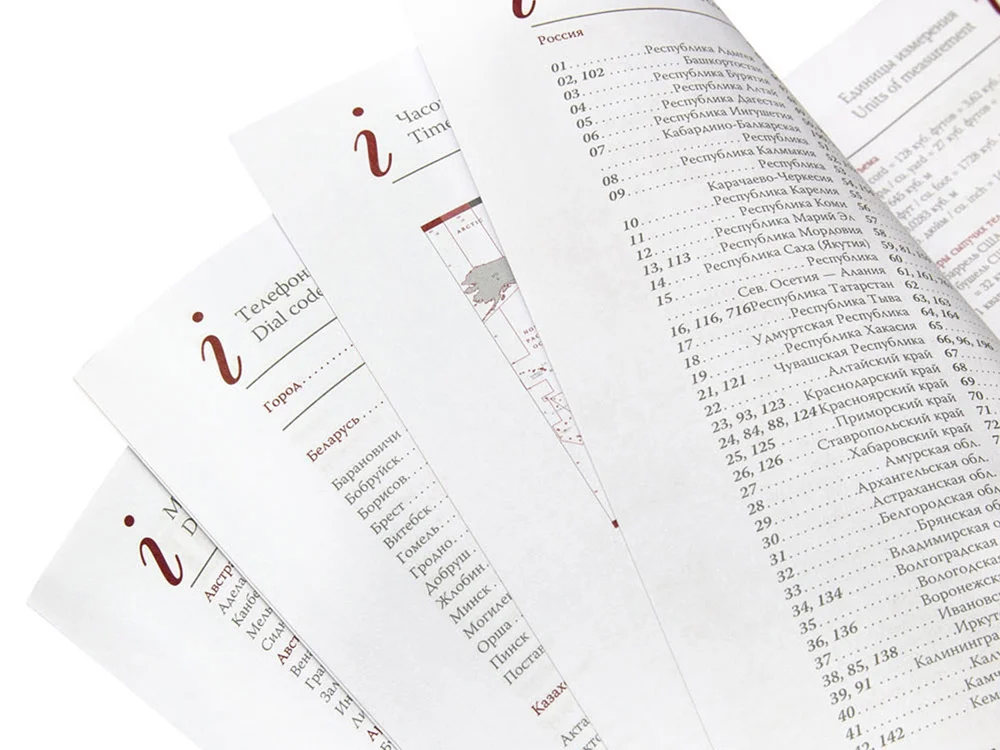 i
Россия
01 Республика Адыгея
02, 102 Башкортостан
03 Республика Бурятия
04 Республика Алтай
05 Республика Дагестан
06 Республика Ингушетия
07 Кабардино-Балкарская
Республика
08 Республика Калмыкия
09 Республика
Карачаево-Черкесия
10 Республика Карелия
11 Республика Коми
12 Республика Марий Эл
13, 113 Республика Мордовия
14 Республика Саха (Якутия)
15 Республика
Сев. Осетия — Алания
16, 116, 716 Республика Татарстан
17 Республика Тыва
18 Удмуртская Республика
19 Республика Хакасия
21, 121 Чувашская Республика
22 Алтайский край
23, 93, 123 Краснодарский край
24, 84, 88, 124 Красноярский край
25, 125 Приморский край
26, 126 Ставропольский край
27 Хабаровский край
28 Амурская обл.
29 Архангельская обл.
30 Астраханская обл.
31 Белгородская обл
32 Брянская об
33 Владимирская об
34, 134 Волгоградская
35 Вологодская
36, 136 Воронежск
37 Ивановс
38, 85, 138 Иркут
39, 91 Калинингра
40 Калу
41 Камч
42, 142 Кем
52
54
55
56
57
58
60
62
63, 163
64, 164
65
66, 96, 196
67
68
69
70
71
72
i
Часо
Time
ARCTIC
i
Телефон
Dial code
Город
Беларусь
Барановичи
Бобруйск
Борисов
Брест
Витебск
Гомель
Гродно
Добруш
Жлобин
Минск
Могилев
Орша
Пинск
Постав
Казахс
Акта
i
М
D
Австра
Адела
Канбе
Мель
Сидн
Авст
Вен
Гра
Зал
Ин
Ли
Единицы измерения
Units of measurement